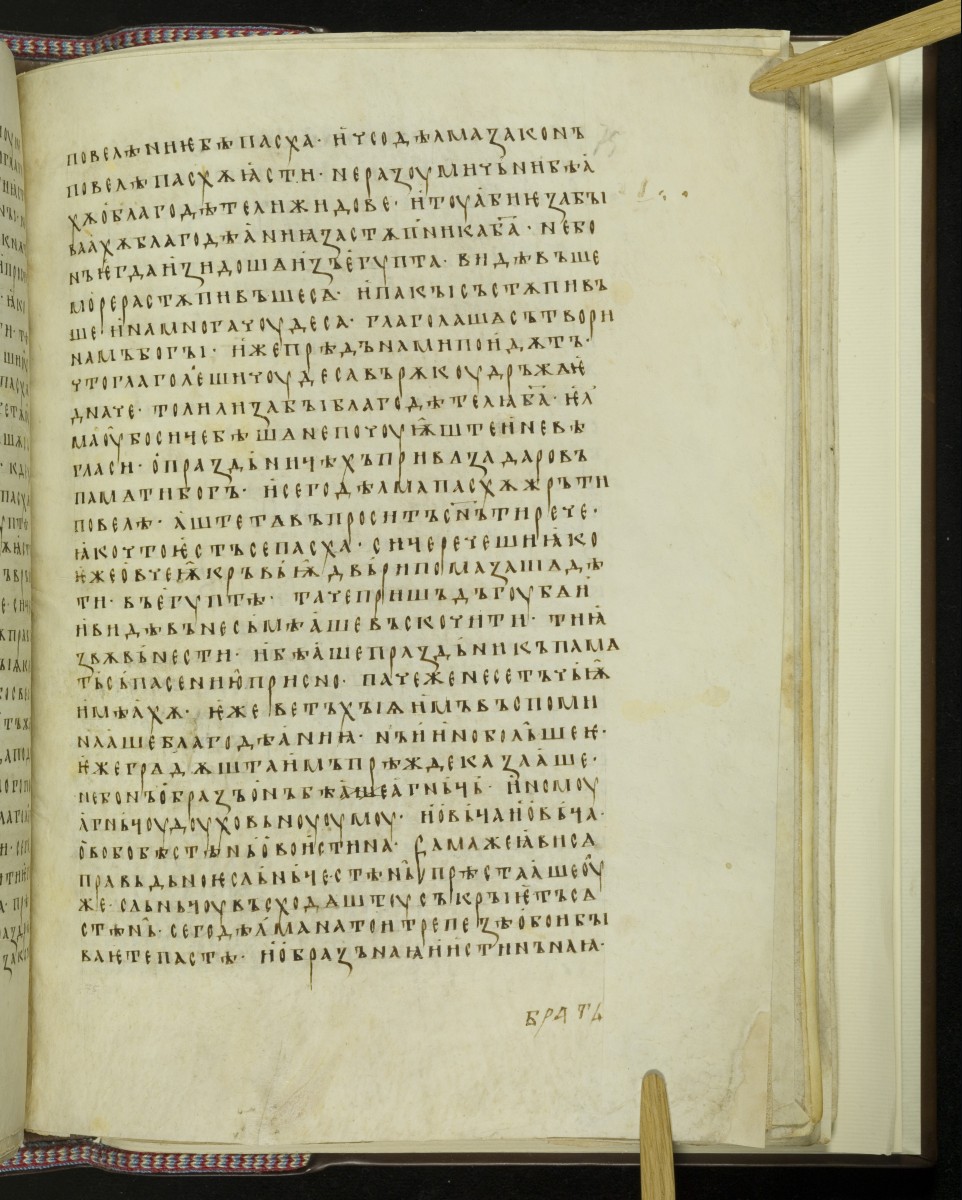 повелѣниѥбѣпасха· и҅чсодѣлмазаконъ
повелѣпасхѫꙗ҅сти· неразоумичьнибѣа҅
хѫо҅благодѣтелижидове· и҅тоуа҅биѥзабꙑ
ваахѫблагодѣа҅ниꙗзастѫпъникаба҃· небо
нъѥгдаи҅зидошаи҅зъе҅гупта· видѣвъше
мо҅рерастѫпивъшесѧ· и҅пакꙑсъстѫпивъ
ше и҅намногачоудеса· глаголашасътвори
намъбогꙑ· и҅жепрѣдънамипои҅дѫтъ·
чтоглаголешичоудесавърѫкоудръжаѥ
дначе· толилизабꙑблагодѣтелꙗба҃· и҅л
маоу҅босичебѣшѧнепочоуѭштеи҅невѣ
гласи· о҅праздьничѣхъпривѧзадаровъ
памѧтибогъ· и҅сегодѣлмапасхѫжръти
повелѣ· а҅штетѧвъпроситъсн҃ътирече·
ꙗкочтоѥстъсепасха· сичеречешиꙗко
ѥжеовчеѭкръвьѭдвьрипомазашадѣ
ти· въе҅гуптѣ· тачепришъдъгоубѧи
и҅видѣвънесьмѣа҅шевъскочити· тиꙗ
звѫвьнести· и҅бѣа҅шепраздьникъпамѧ
тьсъпасениюприсно· пачеженесетъчьѭ
и҅мѣа҅хѫ· ѥжеветъхꙑѩи҅мъвъспоми
наа҅шеблагодѣа҅ниꙗ· нъи҅и҅нобольшеѥ·
ѥжеградѫштаи҅мъпрѣждеказааше·
небонъо҅бразъо҅нъбѣа҅шеа҅гньчь· и҅номоу
а҅гньчоудоуховьноуоумоу· и҅о҅вьчаи҅о҅вьча·
о҅вобобѣстѣньо҅вои҅стина· самажеꙗвисѧ
правьдьноѥсльньче·стѣньпрѣстаа҅шеоу҅
же· сльньчоувъсходѧштоусъкрꙑѥтъсѧ
стѣнь· сегодѣлманатоитрепезѣо҅бои҅бꙑ
ваѥтепастѣ· и҅о҅бразънаꙗи҅и҅стинънаꙗ·
братъ